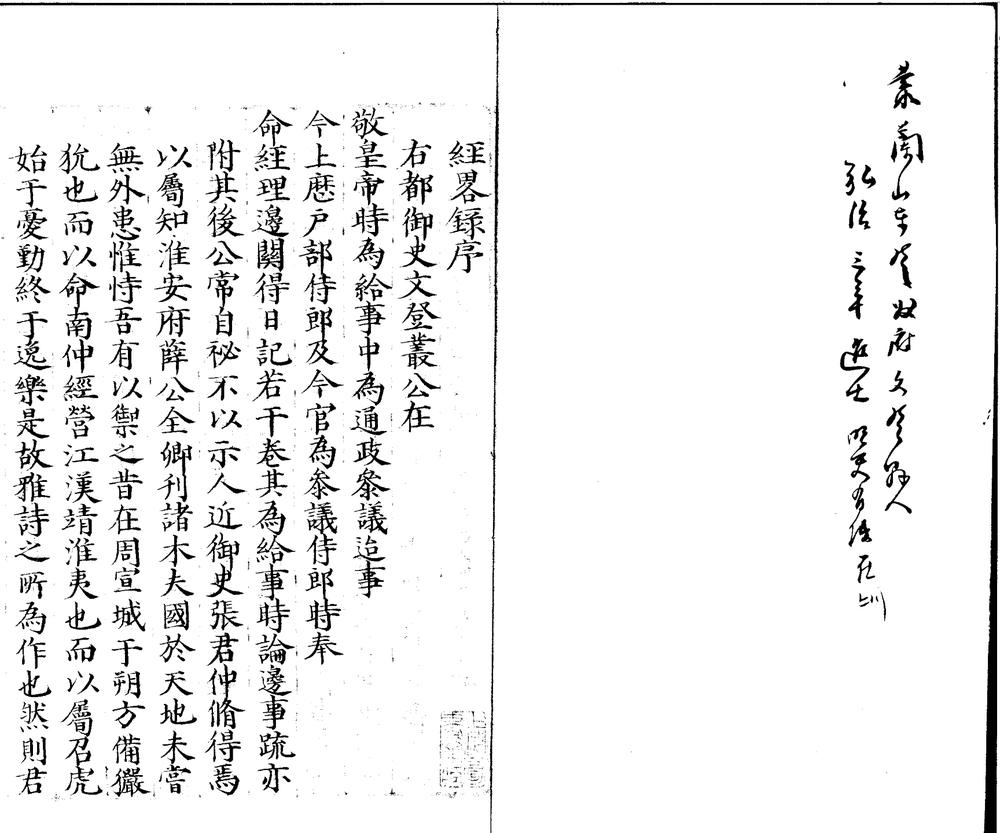 叢蘭山東登州府文登縣人
弘治三年進士 明史有傳
經畧録序
右都御史文登叢公在
敬皇帝時為給事中為通政叅議迨事
今上歷户部侍郎及今官為叅議侍郎時奉
命經理邊關得日記若干卷其為給事時論邊事疏亦
附其後公常自祕不以示人近御史張君仲脩得焉
以屬知淮安府薛公全卿刊諸木夫國於天地未嘗
無外患惟恃吾有以禦之昔在周宣城于朔方備玁
狁也而以命南仲經營江漢靖淮夷也而以屬召虎
始于憂勤終于逸樂是故雅詩之所為作也然則君